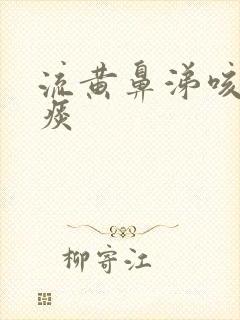 流黄鼻涕咳
痰
柳寄江